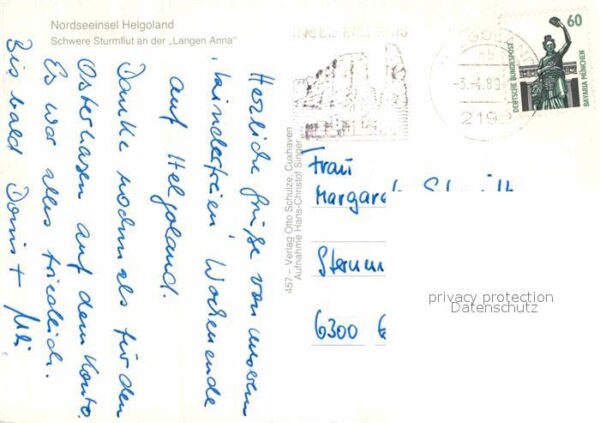 Nordseeinsel Helgoland
Schwere Sturmflut an der „Langen Anna“
Herzliche Grüße von unserem
"kinderfreien" Wochenende
auf Helgoland.
Danke nochmals für den
Osterhasen auf dem Konto.
Es war alles friedlich.
Bis bald Doris +
457 – Verlag Otto Schulze, Cuxhaven
Aufnahme Hans-Christof Singer
-3.-4.89
219
60
DEUTSCHE BUNDESPOST
BAVARIA MÜNCHEN
Frau
6300
privacy protection
Datenschutz